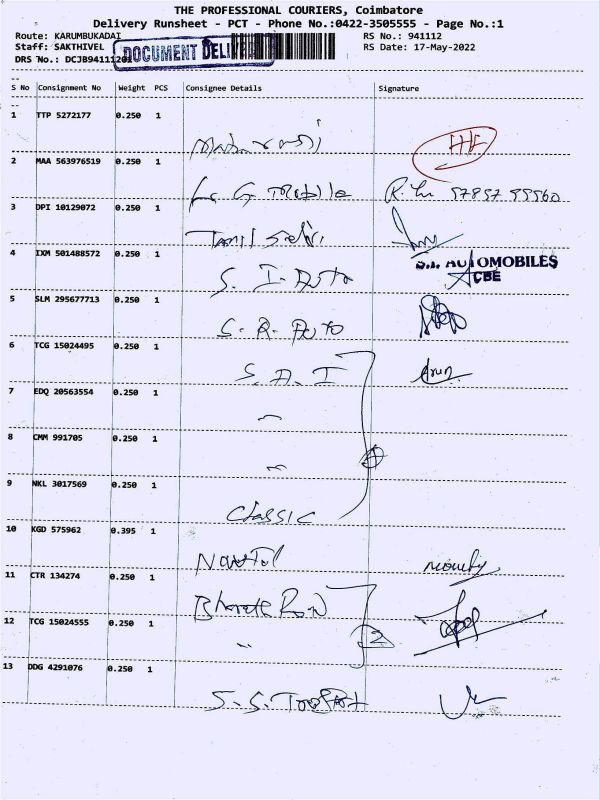 THE PROFESSIONAL COURIERS, Coimbatore
Delivery Runsheet - PCT - Phone No.:0422-3505555 - Page No.:1
Route: KARUMBUKADAI RS No.: 941112
Staff: SAKTHIVEL RS Date: 17-May-2022
DRS No.: DCJB94111201
DOCUMENT DELIV
S No Consignment No Weight PCS Consignee Details Signature
1 TTP 5272177 0.250 1
2 MAA 563976519 0.250 1
G Mobile
3 DPI 10129072 0.250 1
Tamil Selvi
4 IXM 501488572 0.250 1
S. I. Auto S.I. AUTOMOBILES
CBE
5 SLM 295677713 0.250 1
S. R. Auto
6 TCG 15024495 0.250 1
S. A. I Arun
7 EDQ 20563554 0.250 1
"
8 CMM 991705 0.250 1
"
9 NKL 3017569 0.250 1
Classic
10 KGD 575962 0.395 1
11 CTR 134274 0.250 1
12 TCG 15024555 0.250 1
" 2
13 DDG 4291076 0.250 1
S. S.